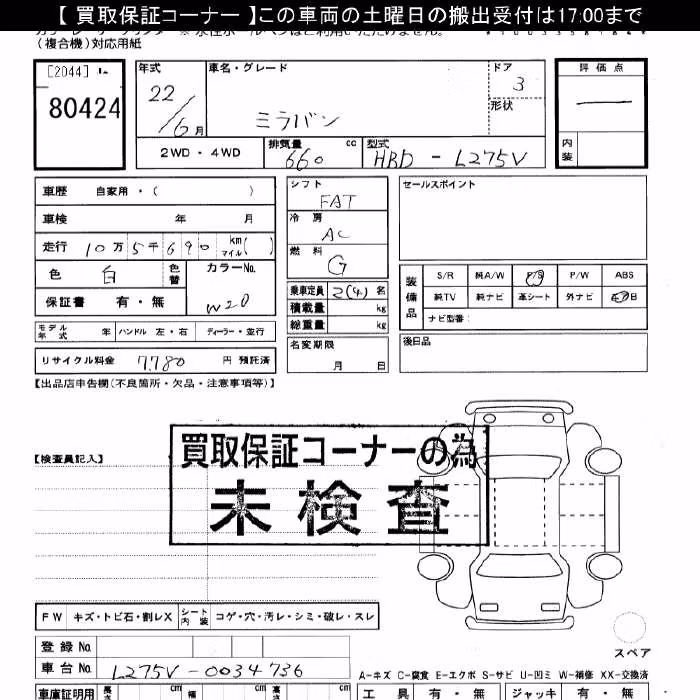 【 買取保証コーナー 】この車両の土曜日の搬出受付は17:00まで
(複合機)対応用紙
[2044]
80424
年式 22/6月
車名・グレード ミラバン
ドア 3
形状
評価点
内装
2WD・4WD
排気量 660 cc
型式 HBD - L275V
車歴 自家用・( )
車検 年 月
走行 10万5千690 km マイル( )
色 白 色替
カラーNo. W20
保証書 有・無
モデル年式 年 ハンドル 左・右 ディーラー・並行
リサイクル料金 7780 円 預託済
シフト FAT
冷房 AC
燃料 G
乗車定員 2(4) 名
積載量 kg
総重量 kg
名変期限 月 日
セールスポイント
装備品
S/R 純A/W P/S P/W ABS
純TV 純ナビ 革シート 外ナビ
ナビ型番:
後日品
【出品店申告欄(不良箇所・欠品・注意事項等)】
【検査員記入】
買取保証コーナーの為
未検査
FW キズ・トビ石・割レX シート内装 コゲ・穴・汚レ・シミ・破レ・スレ
スペア
登録No.
車台No. L275V-0034736
A-キズ C-腐食 E-エクボ S-サビ U-凹ミ W-補修 XX-交換済
車庫証明用 長さ cm 幅 cm 高さ cm
工具 有・無 ジャッキ 有・無